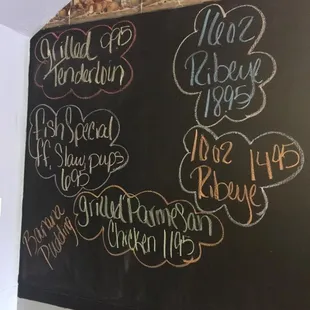 Grilled 9.95
Tenderloin
16 oz
Ribeye
18.95
fish Special
ff. Slaw pups
6.95
10 oz 14.95
Ribeye
grilled Parmesan
Chicken 11.95
Banana
Pudding